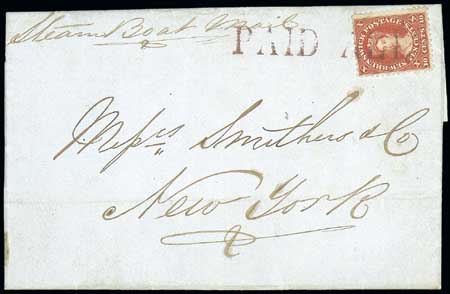 Steam Boat Mail
PAID ALL
Messrs Smithers & Co
New York